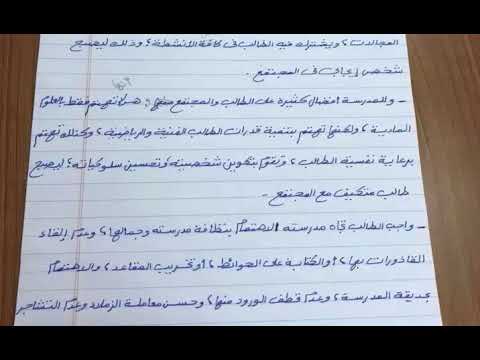 المجالات، ويشترك فيه الطالب فى كافة الأنشطة؛ وذلك ليصبح
شخص إيجابى فى المجتمع.
- وللمدرسة أفضال كثيرة على الطالب والمجتمع منها: أنها لا تهتم فقط بالعلوم
المادية، ولكنها تهتم بتنمية قدرات الطالب الفنية والرياضية، وكذلك تهتم
برعاية نفسية الطالب، وتقوم بتكوين شخصيته وتحسين سلوكياته؛ ليصبح
طالب متكيف مع المجتمع.
- واجب الطالب تجاه مدرسته الاهتمام بنظافة مدرسته وجمالها، وعدم إلقاء
القاذورات بها، أو الكتابة على الحوائط، أو تخريب المقاعد، والاهتمام
بحديقة المدرسة، وعدم قطف الورود منها، وحسن معاملة الزملاء وعدم التشاجر